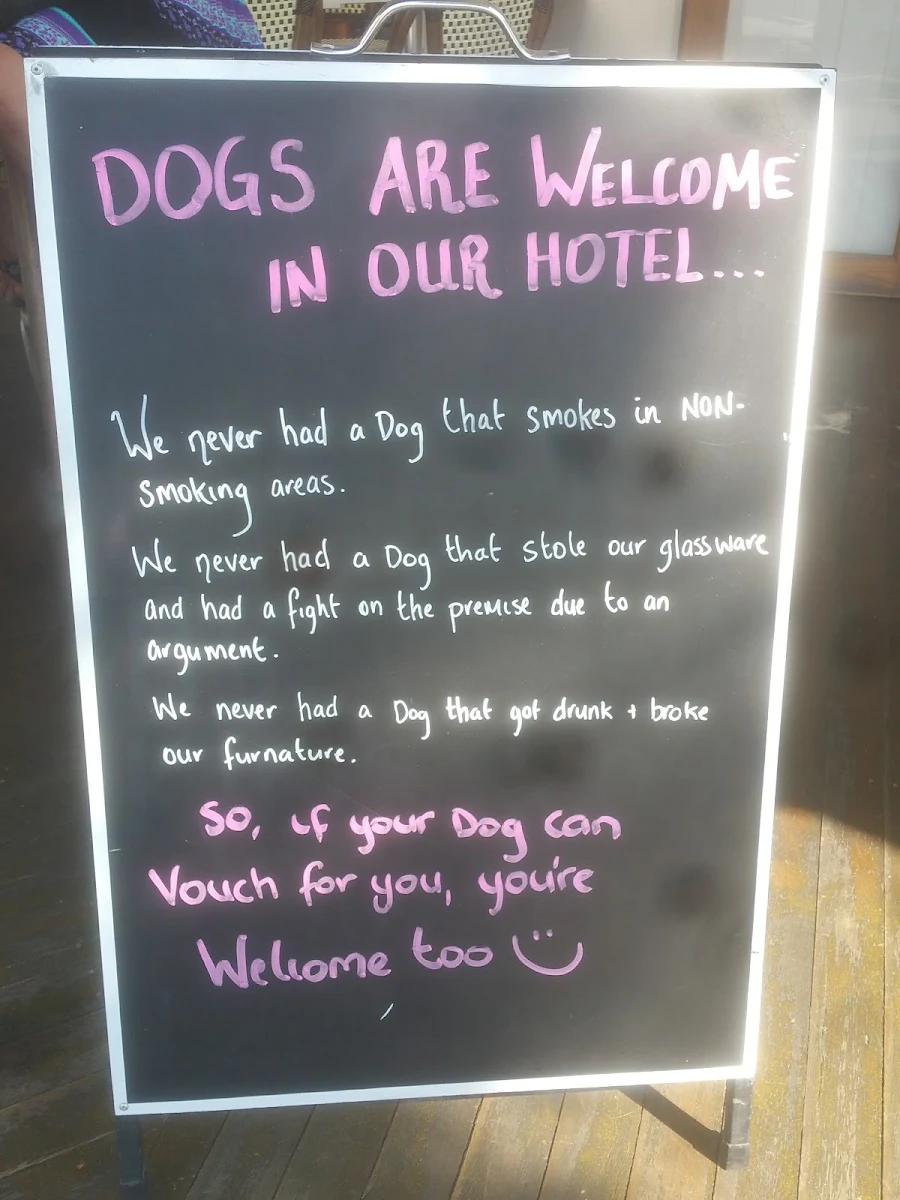 DOGS ARE WELCOME
IN OUR HOTEL...
We never had a Dog that smokes in NON-
smoking areas.
We never had a Dog that stole our glassware
and had a fight on the premise due to an
argument.
We never had a Dog that got drunk + broke
our furnature.
So, if your Dog can
Vouch for you, you're
Welcome too